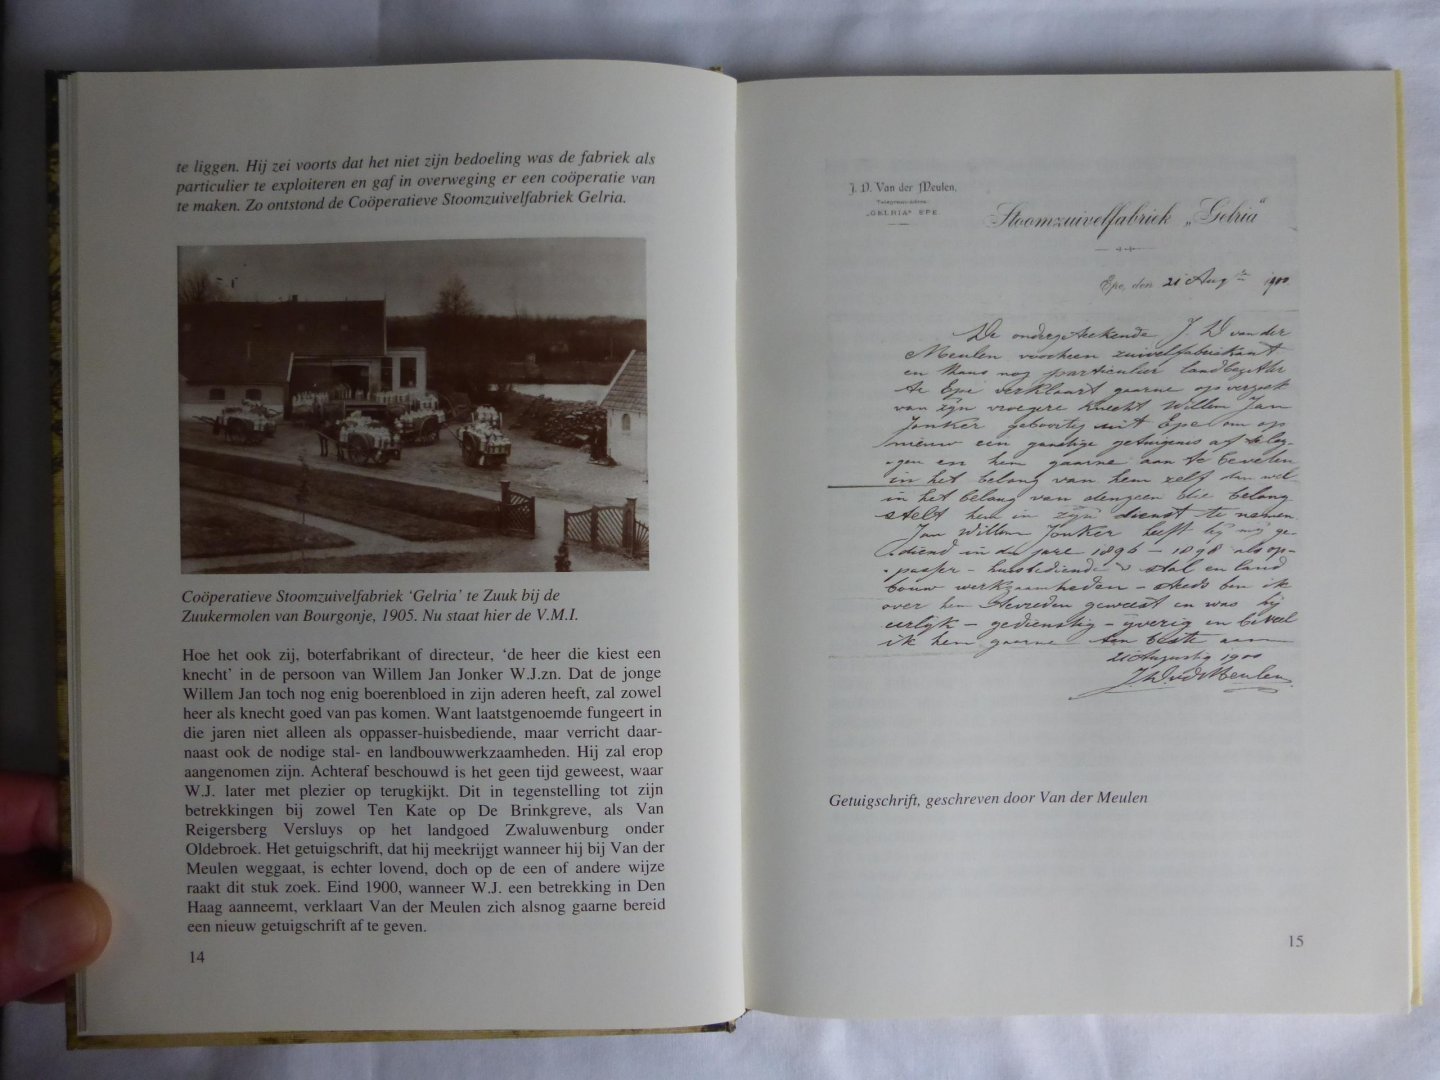 te liggen. Hij zei voorts dat het niet zijn bedoeling was de fabriek als
particulier te exploiteren en gaf in overweging er een coöperatie van
te maken. Zo ontstond de Coöperatieve Stoomzuivelfabriek Gelria.
Coöperatieve Stoomzuivelfabriek ‘Gelria’ te Zuuk bij de
Zuukermolen van Bourgonje, 1905. Nu staat hier de V.M.I.
Hoe het ook zij, boterfabrikant of directeur, ‘de heer die kiest een
knecht’ in de persoon van Willem Jan Jonker W.J.zn. Dat de jonge
Willem Jan toch nog enig boerenbloed in zijn aderen heeft, zal zowel
heer als knecht goed van pas komen. Want laatstgenoemde fungeert in
die jaren niet alleen als oppasser-huisbediende, maar verricht daar-
naast ook de nodige stal- en landbouwwerkzaamheden. Hij zal erop
aangenomen zijn. Achteraf beschouwd is het geen tijd geweest, waar
W.J. later met plezier op terugkijkt. Dit in tegenstelling tot zijn
betrekkingen bij zowel Ten Kate op De Brinkgreve, als Van
Reigersberg Versluys op het landgoed Zwaluwenburg onder
Oldebroek. Het getuigschrift, dat hij meekrijgt wanneer hij bij Van der
Meulen weggaat, is echter lovend, doch op de een of andere wijze
raakt dit stuk zoek. Eind 1900, wanneer W.J. een betrekking in Den
Haag aanneemt, verklaart Van der Meulen zich alsnog gaarne bereid
een nieuw getuigschrift af te geven.
14
J. D. Van der Meulen.
Telegram-adres:
„GELRIA“ EPE
Stoomzuivelfabriek „Gelria“
Epe, den 21 Aug 1900
De ondergeteekende J. D van der
Meulen, voorheen zuivelfabriekant
en thans nog particulier landbezitter
te Epe verklaart gaarne op verzoek
van zijn vroegere knecht Willem Jan
Jonker geboortig uit Epe om op
nieuw een gunstige getuigenis af te leg-
gen en hem gaarne aan te bevelen
in het belang van hem zelf dan wel
in het belang van dengeen die belang
stelt hem in zijn dienst te nemen.
Jan Willem Jonker heeft bij mij ge-
diend in de jare 1896 – 1898 als op-
passer – huisbediende stal en land
bouw werkzaamheden – steeds ben ik
over hem tevreden geweest en was hij
eerlijk – gedienstig – ijverig en beveel
ik hem gaarne ten beste aan
21 Augustus 1900
J. D. v d Meulen
Getuigschrift, geschreven door Van der Meulen
15